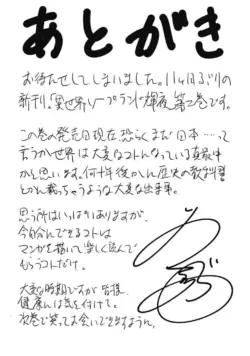 あとがき
お待たせしてしまいました。11ヶ月ぶりの
新刊、異世界ソープランド輝夜 第二巻です。
この巻の発売日現在、恐らくまだ日本……って
言うか世界は大変なコトになっている真最中
かと思います。何十年後かに歴史の教科書
とかに載っちゃうような大変な出来事。
思う所はいっぱいありますが、
今自分にできるコトは
マンガを描いて楽しく読んで
もらうコトだけ。
大変な時期ですが皆様、
健康には気を付けて。
次巻で笑ってお会いできますように。